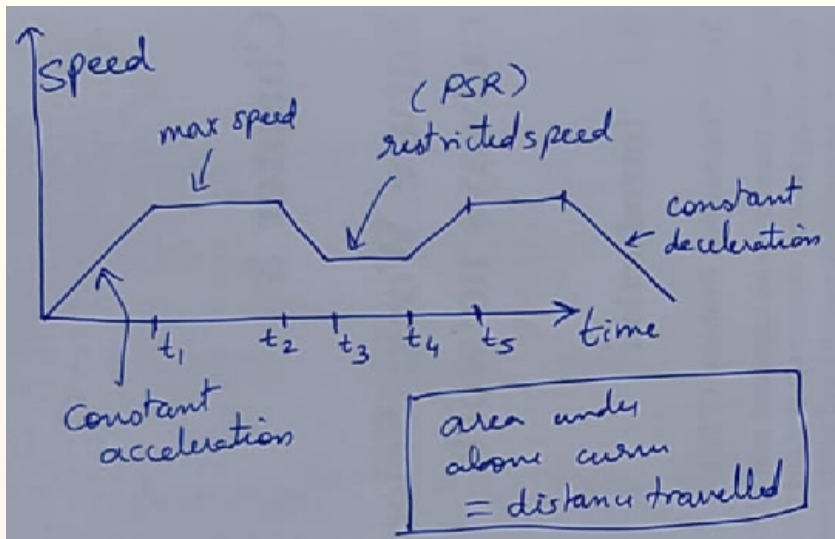 Speed
(PSR)
max speed
restricted speed
constant
deceleration
t1 t2 t3 t4 t5 time
Constant
acceleration
area under
above curve
= distance travelled